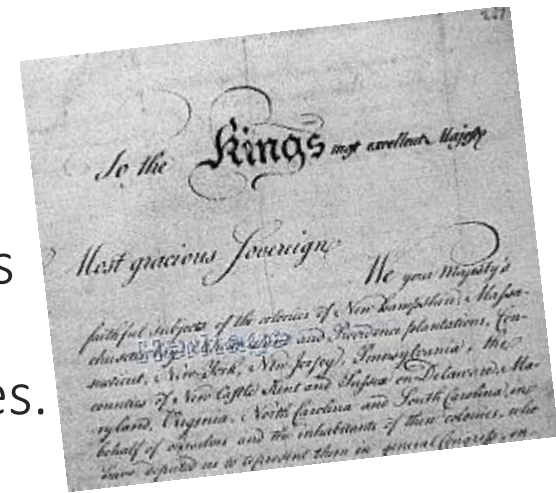 237
To the Kings most excellent Majesty
s
Most gracious Sovereign,
We your Majesty's
faithful subjects of the colonies of New Hampshire, Massa-
chusetts and Providence plantations, Con-
es.
necticut, New-York, New Jersey, Pennsylvania, the
counties of New Castle Kent and Sussex on Delaware, Ma-
ryland, Virginia, North Carolina and South Carolina, in
behalf of ourselves and the inhabitants of these colonies, who
have deputed us to represent them in general Congress,